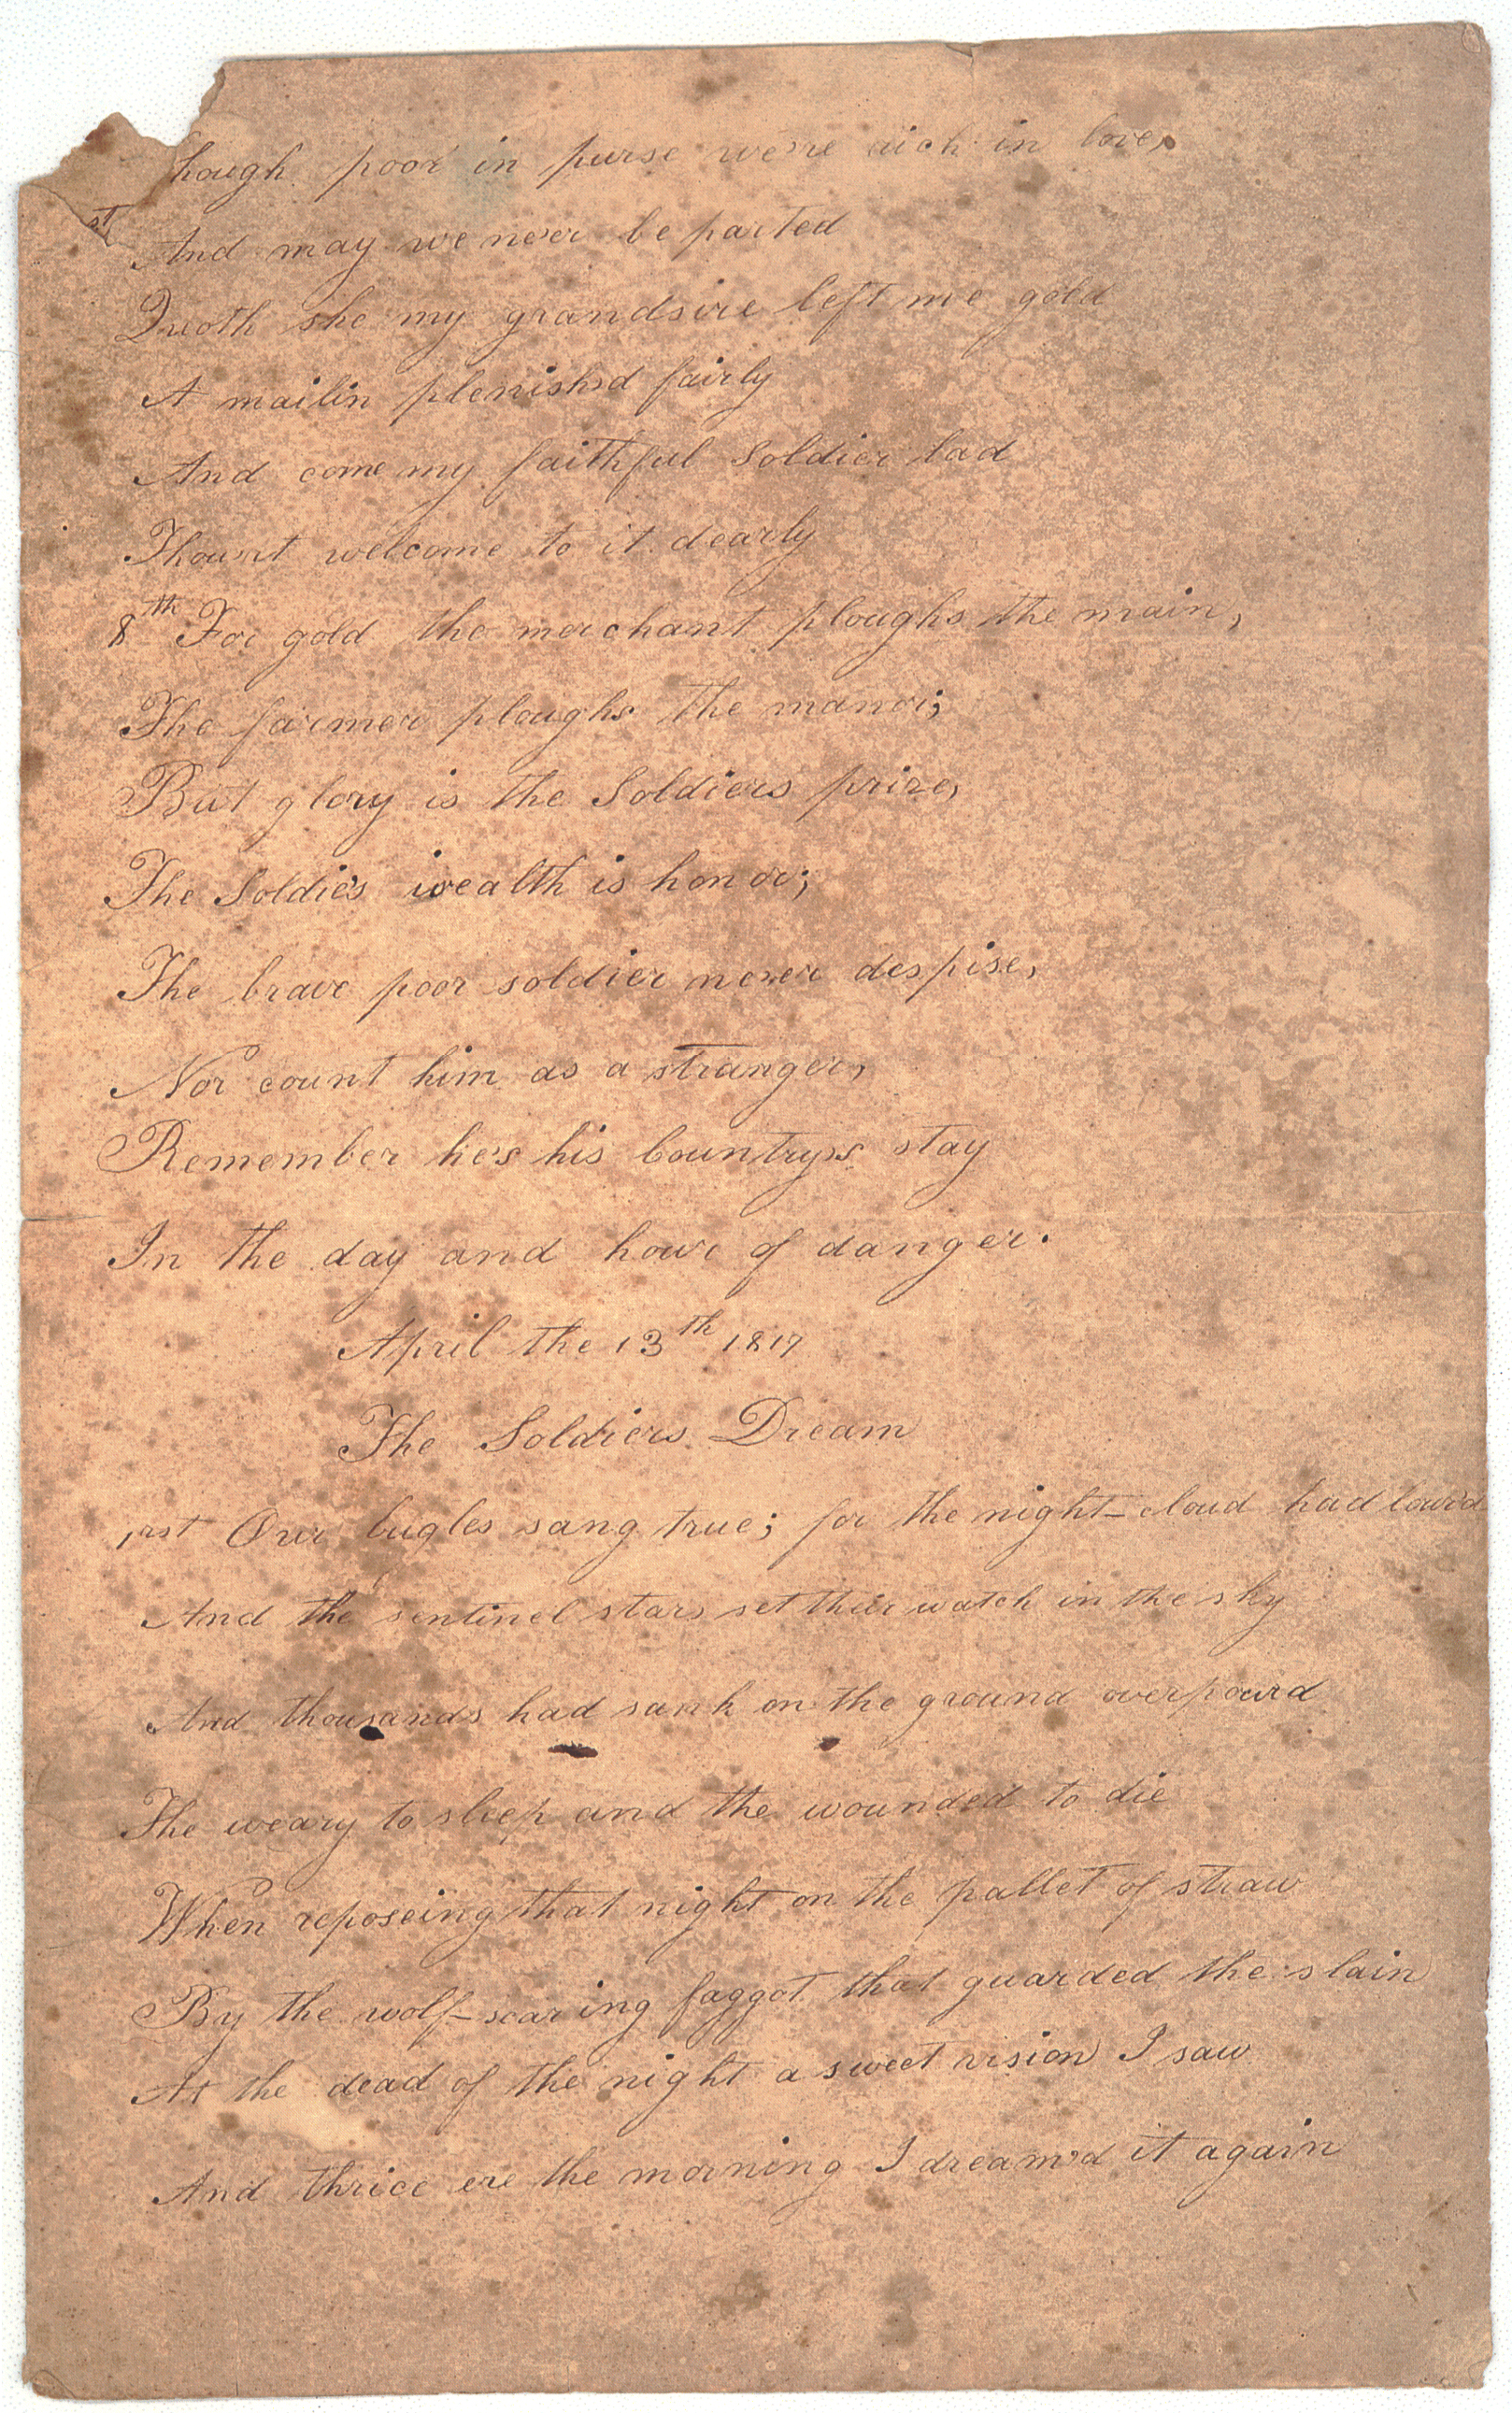 hough poor in purse we're rich in love,
st
And may we never be parted
Quoth she my grandsire left me gold
A mailin plenish'd fairly
And come my faithful Soldier lad
Thou'rt welcome to it dearly
8th For gold the merchant ploughs the main,
The farmer ploughs the manor;
But glory is the Soldiers prize,
The Soldie's wealth is honor;
The brave poor soldier never despise,
Nor count him as a stranger,
Remember he's his Country's stay
In the day and hour of danger.
April the 13th 1817
The Soldiers Dream
1rst Our bugles sang true; for the night-cloud had lowr'd
And the sentinel stars set their watch in the sky
And thousands had sank on the ground overpowrd
The weary to sleep and the wounded to die
When reposeing that night on the pallet of straw
By the wolf-scaring faggot that guarded the slain
At the dead of the night a sweet vision I saw
And thrice ere the morning I dream'd it again